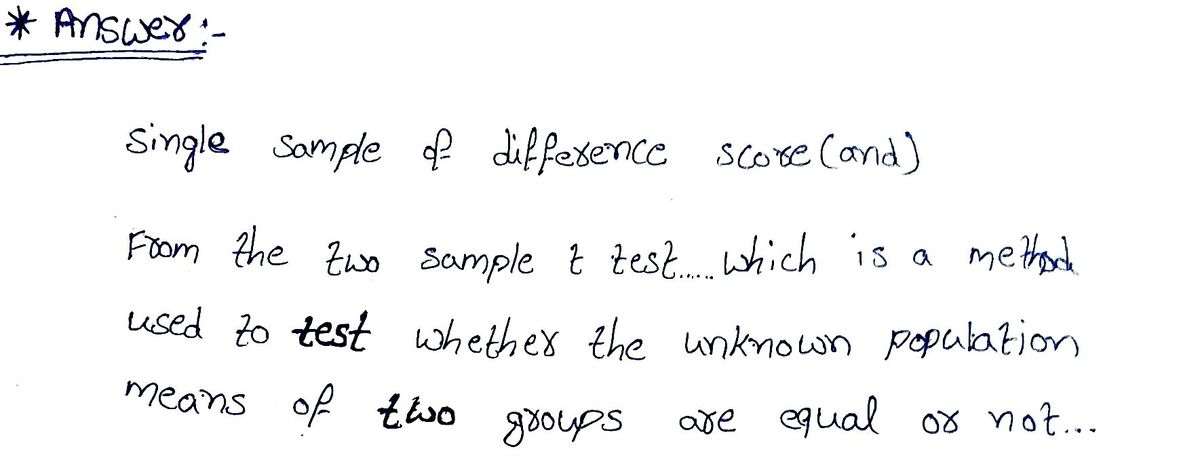 * Answer :-
Single sample of difference score (and)
From the two sample t test..... which is a method
used to test whether the unknown population
means of two groups are equal or not...